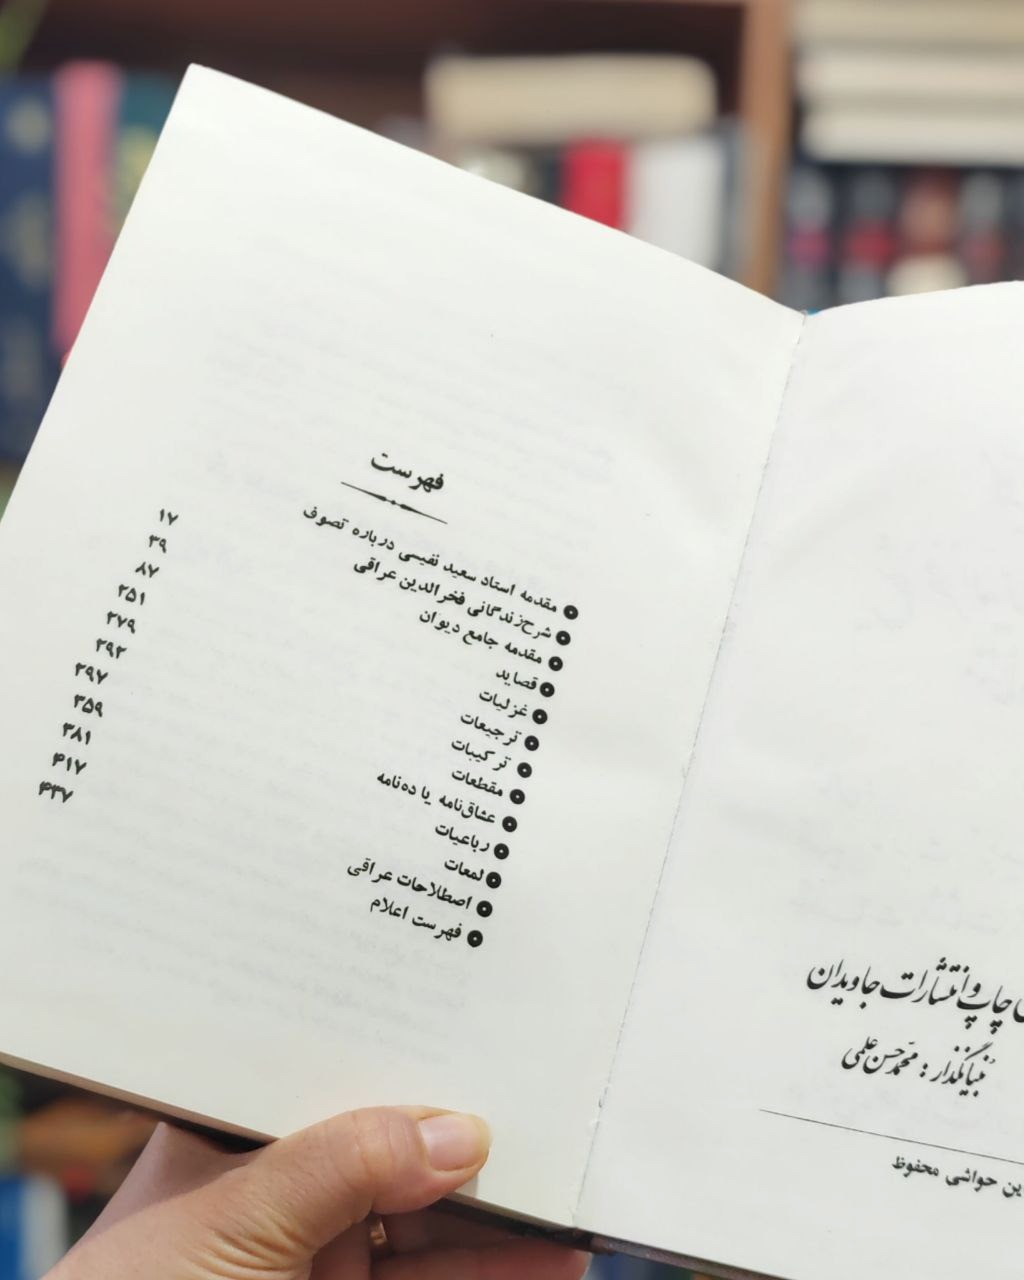 فهرست
مقدمه استاد سعید نفیسی درباره تصوف
شرح‌زندگانی فخرالدین عراقی
مقدمه جامع دیوان
قصاید
غزلیات
ترجیعات
ترکیبات
مقطعات
عشاق‌نامه یا ده‌نامه
رباعیات
لمعات
اصطلاحات عراقی
فهرست اعلام
۱۷
۳۹
۸۷
۲۵۱
۲۷۹
۲۹۲
۲۹۷
۳۵۹
۳۸۱
۴۱۷
۴۳۷
چاپ و انتشارات جاویدان
بنیانگذار : محمدحسن علمی
حواشی محفوظ